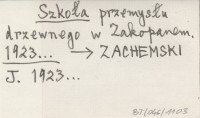 Szkoła przemysłu
drzewnego w Zakopanem.
1923... → ZACHEMSKI
J. 1923...